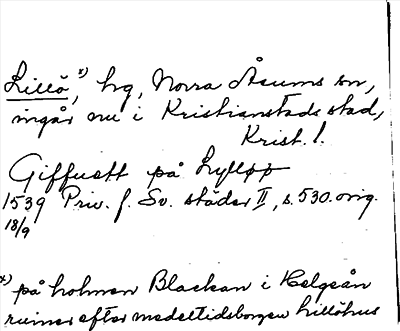 Lillö,ˣ⁾ hg, Norra Åsums sn,
ingår nu i Kristianstads stad,
Krist. l.
Giffuett på Lylløø
1539 Priv. f. Sv. städer II, s. 530. orig.
18/9
ˣ⁾ på holmen Blackan i Helgeån
ruiner efter medeltidsborgen Lillöhus